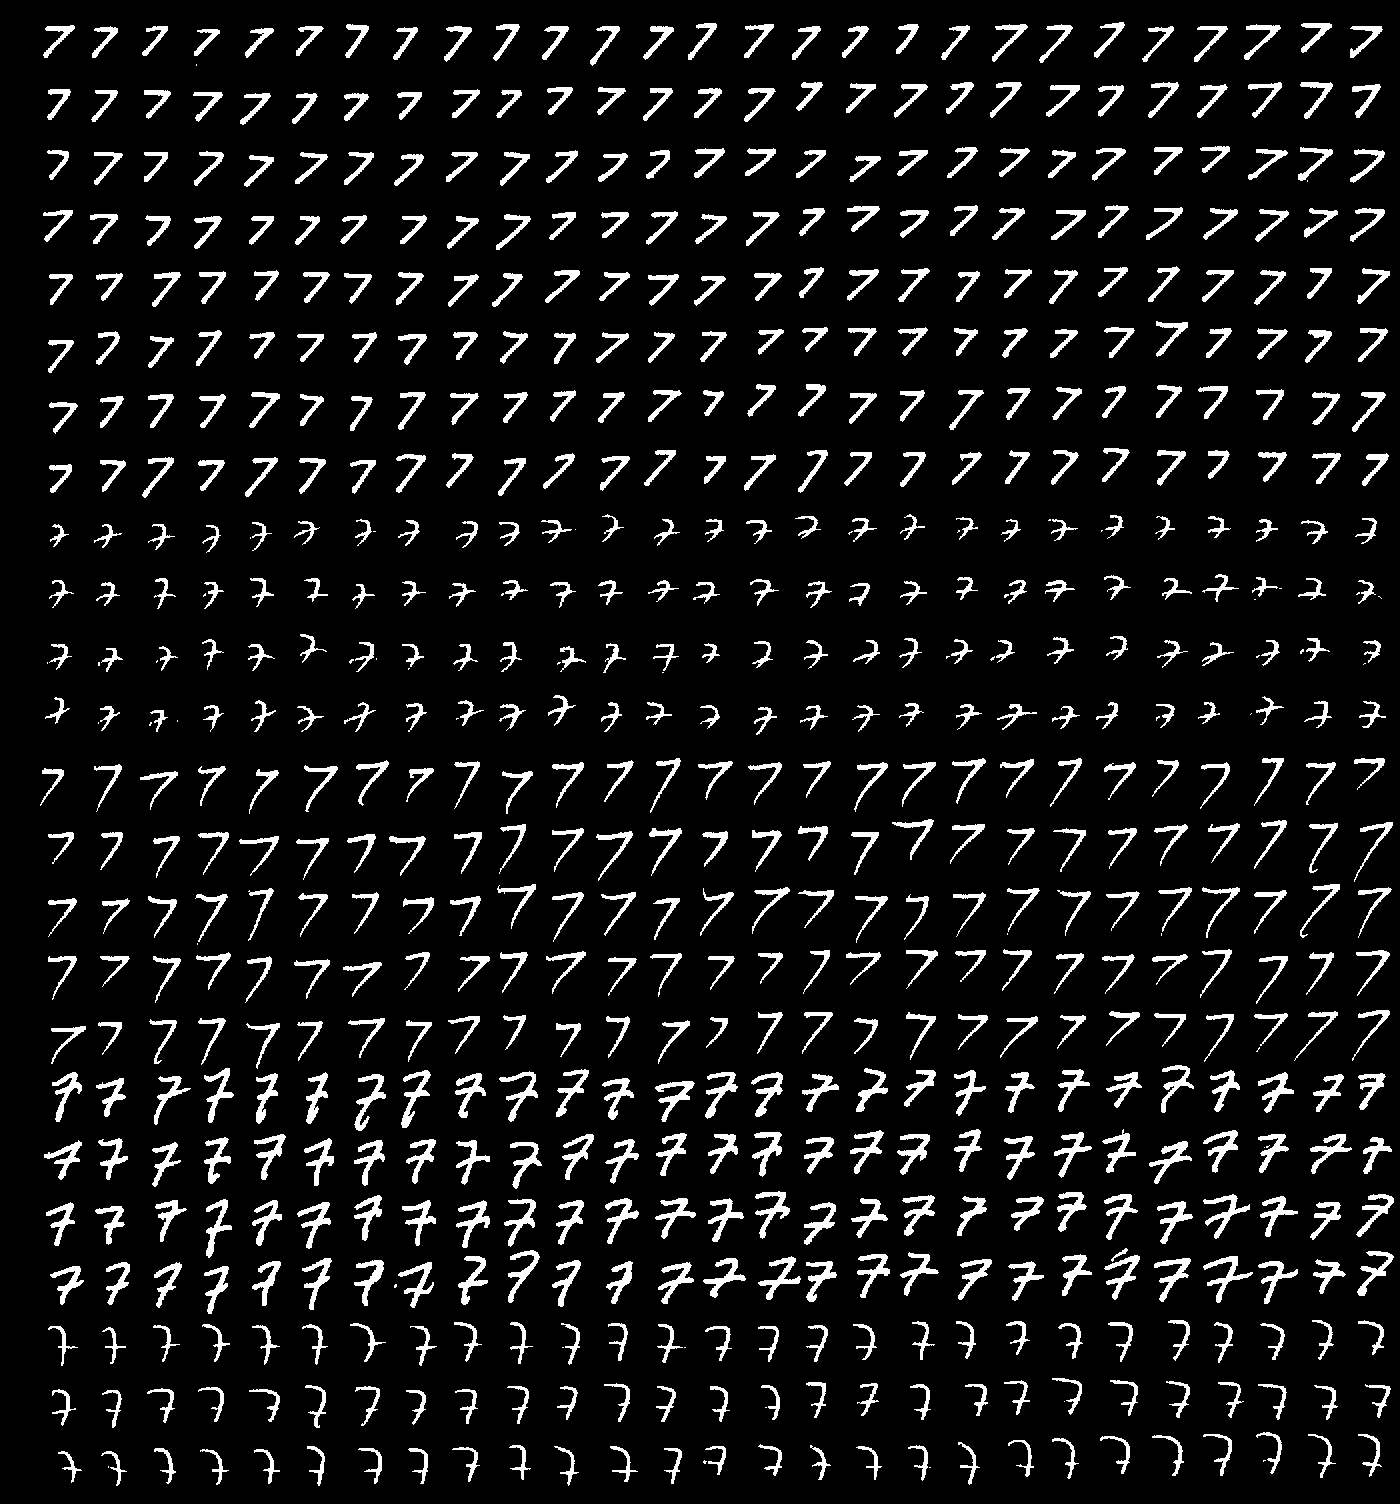 7 7 7 7 7 7 7 7 7 7 7 7 7 7 7 7 7 7 7 7 7 7 7 7 7 7 7
7 7 7 7 7 7 7 7 7 7 7 7 7 7 7 7 7 7 7 7 7 7 7 7 7 7 7
7 7 7 7 7 7 7 7 7 7 7 7 7 7 7 7 7 7 7 7 7 7 7 7 7 7 7
7 7 7 7 7 7 7 7 7 7 7 7 7 7 7 7 7 7 7 7 7 7 7 7 7 7 7
7 7 7 7 7 7 7 7 7 7 7 7 7 7 7 7 7 7 7 7 7 7 7 7 7 7 7
7 7 7 7 7 7 7 7 7 7 7 7 7 7 7 7 7 7 7 7 7 7 7 7 7 7 7
7 7 7 7 7 7 7 7 7 7 7 7 7 7 7 7 7 7 7 7 7 7 7 7 7 7 7
7 7 7 7 7 7 7 7 7 7 7 7 7 7 7 7 7 7 7 7 7 7 7 7 7 7 7
7 7 7 7 7 7 7 7 7 7 7 7 7 7 7 7 7 7 7 7 7 7 7 7 7 7 7
7 7 7 7 7 7 7 7 7 7 7 7 7 7 7 7 7 7 7 7 7 7 7 7 7 7 7
7 7 7 7 7 7 7 7 7 7 7 7 7 7 7 7 7 7 7 7 7 7 7 7 7 7 7
7 7 7 7 7 7 7 7 7 7 7 7 7 7 7 7 7 7 7 7 7 7 7 7 7 7 7
7 7 7 7 7 7 7 7 7 7 7 7 7 7 7 7 7 7 7 7 7 7 7 7 7 7 7
7 7 7 7 7 7 7 7 7 7 7 7 7 7 7 7 7 7 7 7 7 7 7 7 7 7 7
7 7 7 7 7 7 7 7 7 7 7 7 7 7 7 7 7 7 7 7 7 7 7 7 7 7 7
7 7 7 7 7 7 7 7 7 7 7 7 7 7 7 7 7 7 7 7 7 7 7 7 7 7 7
7 7 7 7 7 7 7 7 7 7 7 7 7 7 7 7 7 7 7 7 7 7 7 7 7 7 7
7 7 7 7 7 7 7 7 7 7 7 7 7 7 7 7 7 7 7 7 7 7 7 7 7 7 7
7 7 7 7 7 7 7 7 7 7 7 7 7 7 7 7 7 7 7 7 7 7 7 7 7 7 7
7 7 7 7 7 7 7 7 7 7 7 7 7 7 7 7 7 7 7 7 7 7 7 7 7 7 7
7 7 7 7 7 7 7 7 7 7 7 7 7 7 7 7 7 7 7 7 7 7 7 7 7 7 7
7 7 7 7 7 7 7 7 7 7 7 7 7 7 7 7 7 7 7 7 7 7 7 7 7 7 7
7 7 7 7 7 7 7 7 7 7 7 7 7 7 7 7 7 7 7 7 7 7 7 7 7 7 7
7 7 7 7 7 7 7 7 7 7 7 7 7 7 7 7 7 7 7 7 7 7 7 7 7 7 7